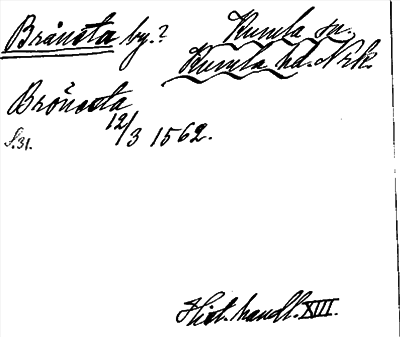 Brånsta by.? Kumla sn.
Kumla hd. Nrk.
Brönesta
S.31. 12/3 1562.
Hist. handl. XIII.